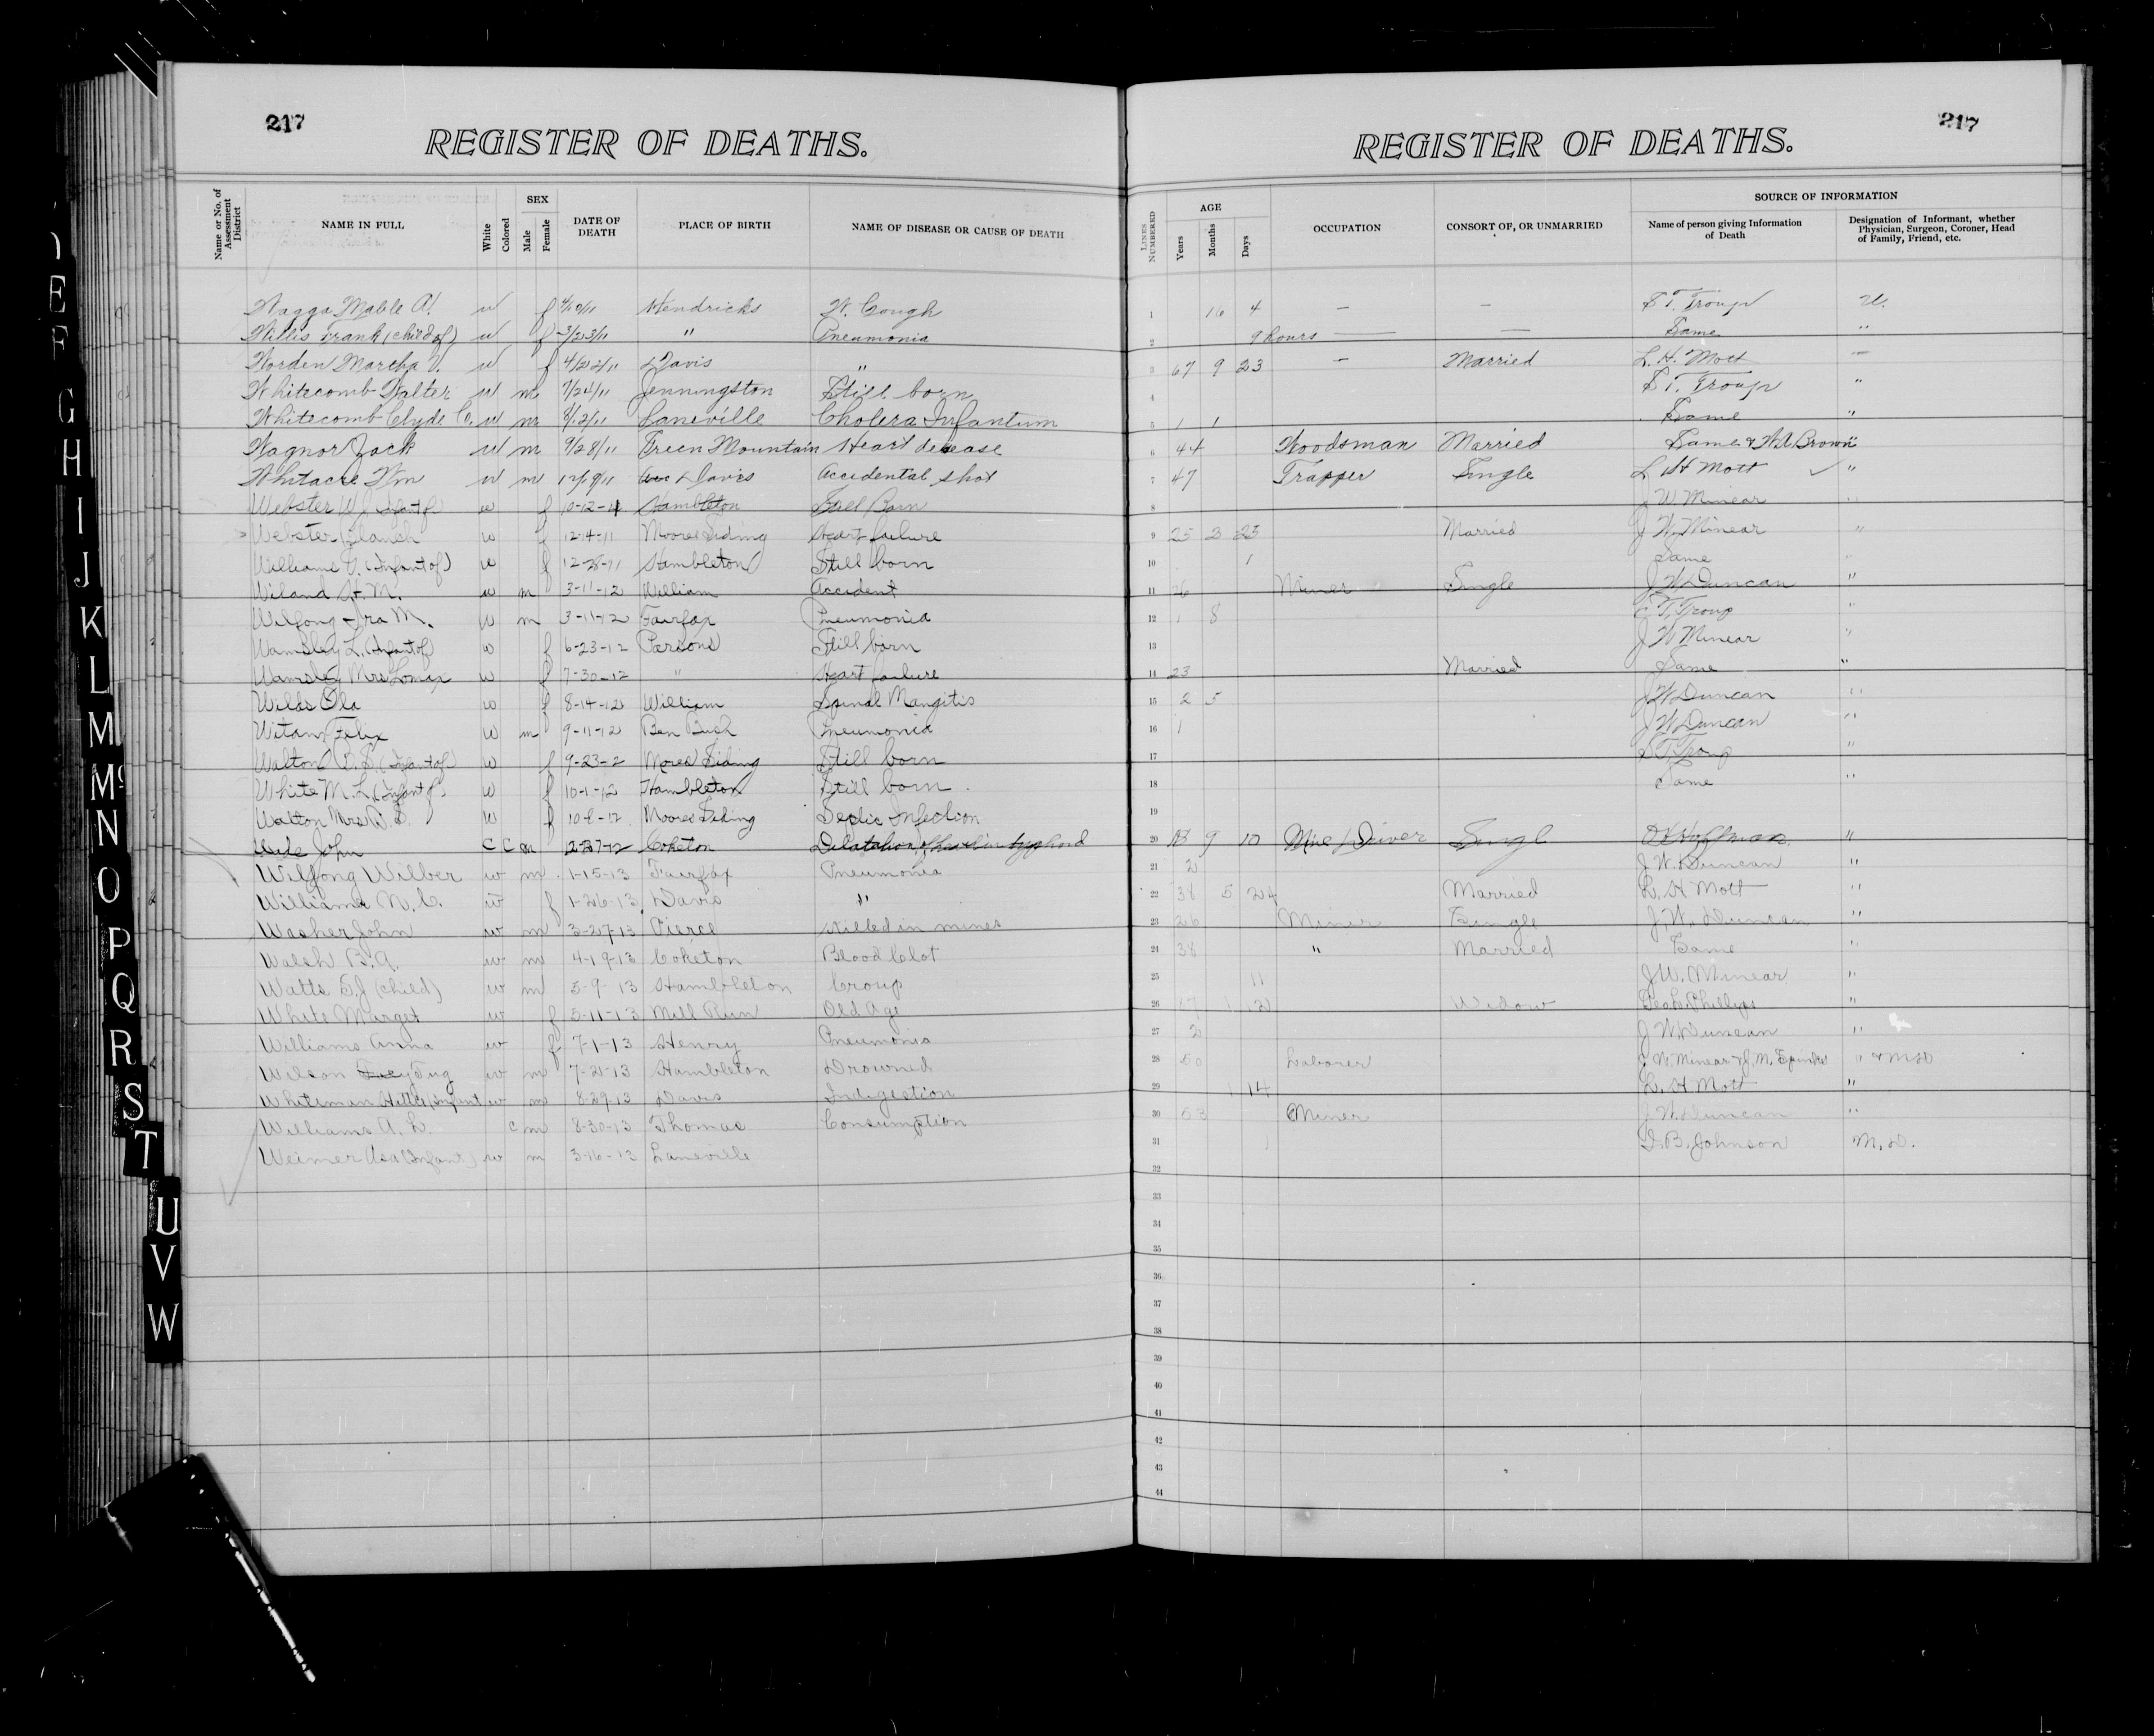 217
REGISTER OF DEATHS.
Name or No. of Assessment District
NAME IN FULL
White
Colored
SEX
Male
Female
DATE OF DEATH
PLACE OF BIRTH
NAME OF DISEASE OR CAUSE OF DEATH
Wagga Mable A. w f 4/10/11 Hendricks W. Cough
Willis Frank (child of) w f 3/23/11 " Pneumonia
Worden Martha V. w f 4/22/11 Davis "
Whitecomb Walter w m 7/24/11 Jenningston Still born
Whitecomb Clyde C. w m 8/2/11 Laneville Cholera Infantum
Wagnor Jack w m 9/28/11 Green Mountain Heart desease
Whitacre Wm w m 12/9/11 Davis Accidental shot
Webster W J Infant of w f 10-12-11 Hambleton Still Born
Webster Blanch w f 12-14-11 Moores Siding Heart failure
Williams (Infant of) w f 12-28-11 Hambleton Still born
Wiland H. M. w m 3-11-12 William Accident
Wilfong Ira M. w m 3-11-12 Fairfax Pneumonia
Wamsley L. (Infant of) w f 6-23-12 Parsons Still born
Wamsley Mrs Lomax w f 7-30-12 " Heart failure
Wilds Ola w f 8-14-12 William Spinal Mangitis
Witan Felix w m 9-11-12 Ben Bush Pneumonia
Walton D. S. (Infant of) w f 9-23-2 Moores Siding Still born
White M. L. (Infant of) w f 10-1-12 Hambleton Still born.
Walton Mrs D. S. w f 10-8-12 Moores Siding Septic Infection
John C C m 2-27-12 Coketon Dilatation of typhoid
Wilfong Wilber w m 1-15-13 Fairfax Pneumonia
Williams N. C. w f 1-26-13 Davis "
Washer John w m 3-27-13 Pierce Killed in mines
Walsh B. A. w m 4-19-13 Coketon Blood Clot
Watts S. J (child) w m 5-9-13 Hambleton Croup
White Marget w f 5-11-13 Mill Run Old Age
Williams Anna w f 7-1-13 Henry Pneumonia
Wilson Tug w m 7-2-13 Hambleton Drowned
Whiteman (Infant w m 8-29-13 Davis Indigestion
Williams A. L. c m 8-30-13 Thomas Consumption
Weimer Asa (Infant) w m 3-16-13 Laneville
217
REGISTER OF DEATHS.
LINES NUMBERED
AGE
Years
Months
Days
OCCUPATION
CONSORT OF, OR UNMARRIED
SOURCE OF INFORMATION
Name of person giving Information of Death
Designation of Informant, whether Physician, Surgeon, Coroner, Head of Family, Friend, etc.
1 16 4 — — S. T. Troup
2 9 hours — — Same "
3 67 9 23 — Married L. H. Mott "
4 S T. Troup "
5 1 1 Same "
6 44 Woodsman Married Same & W.A. Brown "
7 47 Trapper Single L H Mott "
8 J W Minear "
9 25 2 25 Married J W Minear "
10 1 Same "
11 26 Miner Single J W Duncan "
12 1 8 S T. Troup "
13 J W Minear "
14 23 Married Same "
15 2 5 J W Duncan "
16 1 J W Duncan "
17 S T. Troup "
18 Same "
19
20 9 10 Mine Driver Single O H Hoffman "
21 2 J. W. Duncan "
22 38 5 24 Married L. H Mott "
23 26 Miner Single J. W. Duncan "
24 38 " Married Same "
25 11 J W. Minear "
26 1 12 Widow Geo. L. Phillips "
27 2 J. W. Duncan "
28 50 Laborer J. W. Minear & J. M. " & M D
29 1 14 L. H Mott "
30 53 Miner J W. Duncan "
31 1 J. B. Johnson M. D.
32
33
34
35
36
37
38
39
40
41
42
43
44
E
F
G
H
I
J
K
L
M
Mc
N
O
P
Q
R
S
T
U
V
W